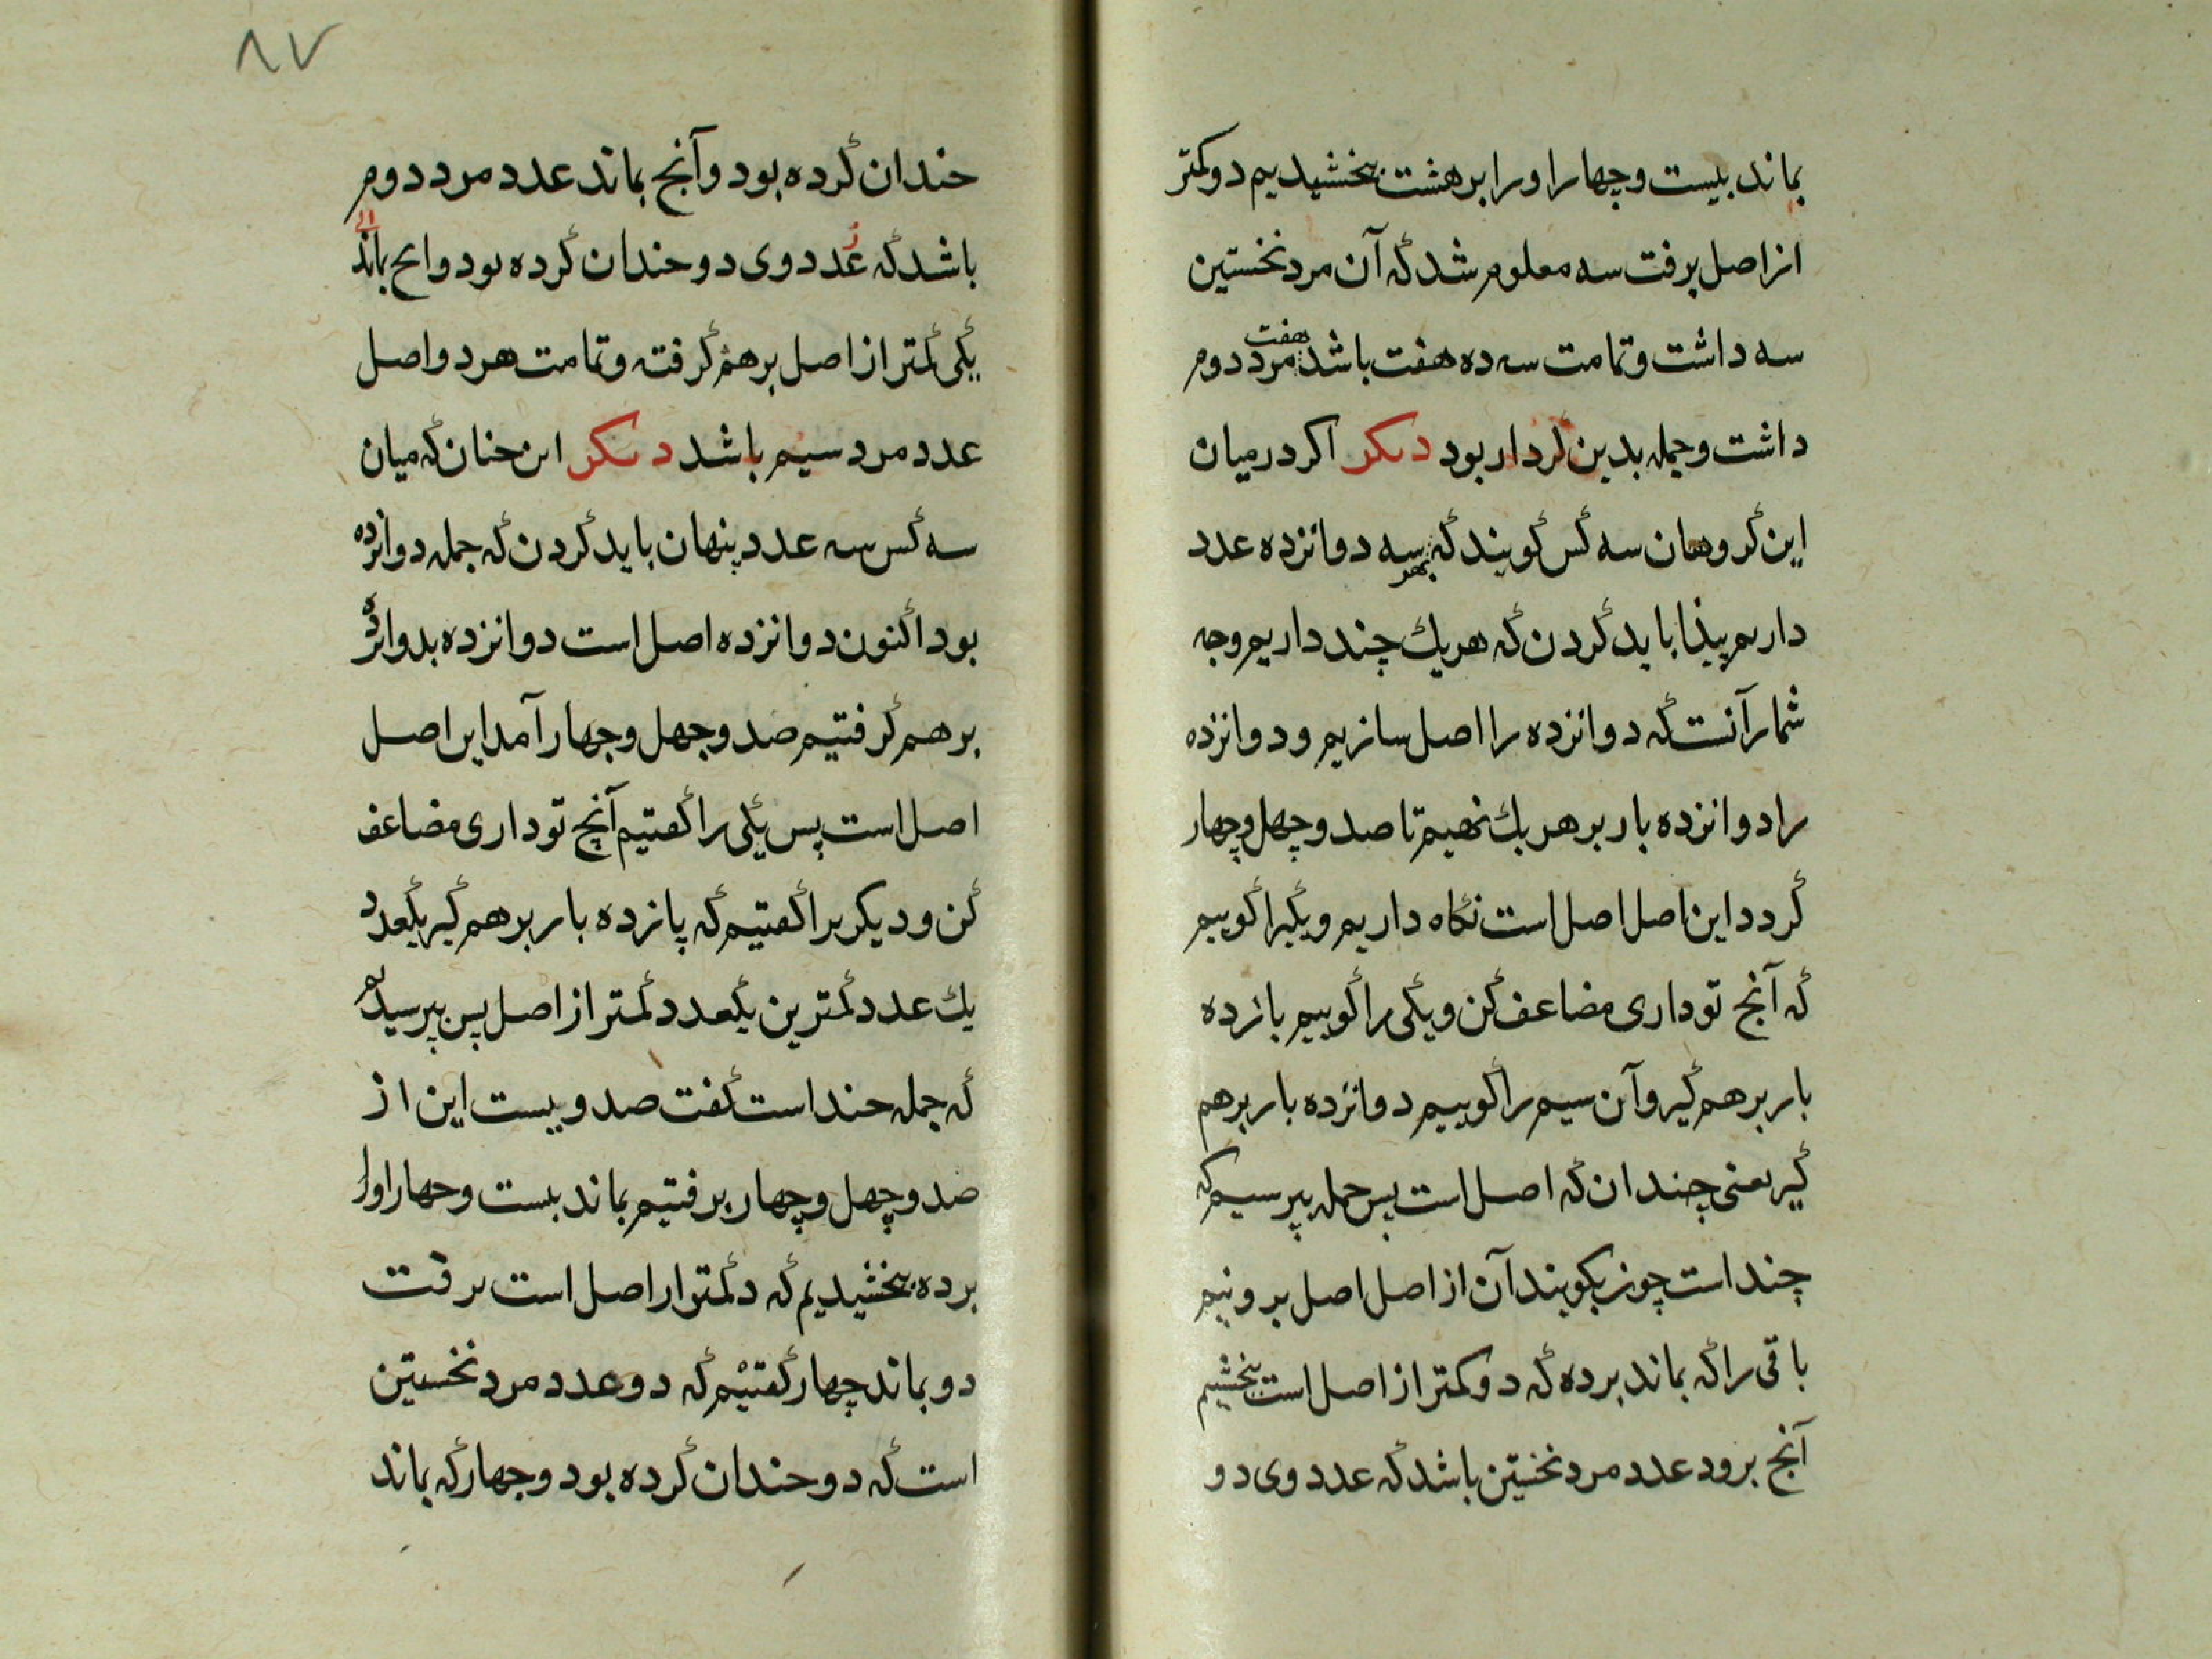 بماند بیست و چهار او را بر هشت بخشیدیم دو کمتر
از اصل برفت سه معلوم شد که آن مرد نخستین
سه داشت و تمامت سه ده هفت باشد هفت مرد دوم
داشت و جمله بدین کردار بود دیکر اکر در میان
این کروهان سه کس کویند که بهر سه دوانزده عدد
داریم پیذا باید کردن که هر یک چند داریم وجه
شمار آنست که دوانزده را اصل سازیم و دوانزده
را دوانزده بار بر هر یک نهیم تا صد و چهل و چهار
کردد این اصل اصل است نکاه داریم و یکیرا کوییم
که آنج تو داری مضاعف کن و یکی را کوییم یانزده
بار بر هم کیر و آن سیم را کوییم دوانزده بار بر هم
کیر یعنی چندان که اصل است پس جمله بپرسیم که
چند است چون بکویند آن از اصل اصل برونیم
باقی را که بماند بر ده که دو کمتر از اصل است بخشیم
آنج برود عدد مرد نخستین باشد که عدد وی دو
۸۷
خندان کرده بود و آنج بماند عدد مرد دوم
باشد که عدد وی دو خندان کرده بود و انج بماند
یکی کمتر از اصل بر هم کرفته و تمامت هر دو اصل
عدد مرد سیم باشد دیکر این خنان که میان
سه کس سه عدد پنهان باید کردن که جمله دوانزده
بود اکنون دوانزده اصل است دوانزده بدوانزده
بر هم کرفتیم صد و جهل و جهار آمد این اصل
اصل است پس یکی را کفتیم آنچ تو داری مضاعف
کن و دیکر را کفتیم که یانزده بار بر هم کیر بکعدد
یک عدد کمترین یکعدد کمتر از اصل پس بپرسیدیم
که جمله خند است کفت صد و بیست این از
صد و چهل و چهار برفتیم بماند بیست و جهار اورا
بر ده بخشیدیم که د کمتر از اصل است برفت
دو بماند چهار کفتیم که دو عدد مرد نخستین
است که دو خندان کرده بود و جهار که بماند